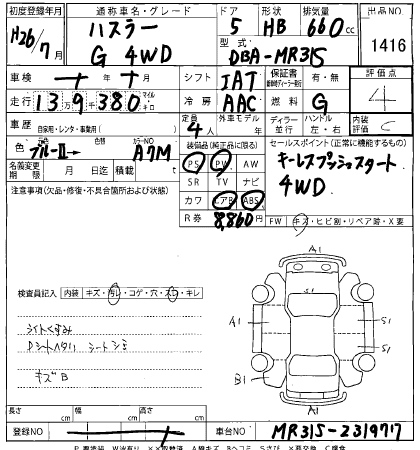 初度登録年月 通称車名・グレード ドア 形状 排気量 出品NO
H26/7月 ハスラー G 4WD 5 HB 660cc 1416
型式 DBA-MR31S
車検 年 月 シフト IAT 保証書 有・無 評価点 4
走行 13万9千380 マイル キロ 冷房 AAC 燃料 G
車歴 自家用・レンタ・事業用( ) 定員 4人 外車モデル ディーラー 並行 ハンドル 左・右 内装評価 C
色 ブルーII→ カラーNO A7M
装備品(純正品に限る) セールスポイント(正常に機能するもの)
名義変更期限 月 日迄 積載 t PS PW AW キーレスプッシュスタート
注意事項(欠品・修復・不具合箇所および状態) SR TV ナビ 4WD
カワ エアB ABS
R券 8,860円 FW キズ・ヒビ割・リペア跡・X要
A1
S1
検査員記入 内装 キズ・汚レ・コゲ・穴・スレ・キレ
A1 S1 S1
ライトくすみ
Dシートヘタリ シートシミ
B1
キズB
A1
長さ cm 幅 cm 高さ cm
登録NO 車台NO MR31S-2319717